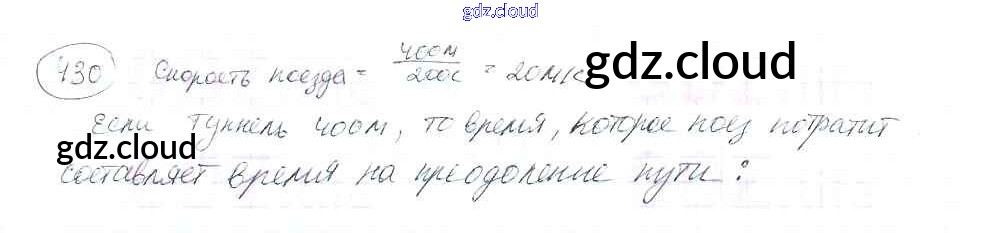 gdz.cloud
430 Скорость поезда = 400м / = 20м/с gdz.cloud
Если туннель 400м, то время, которое поез потратит
gdz.cloud
составляет время на преодоление пути: